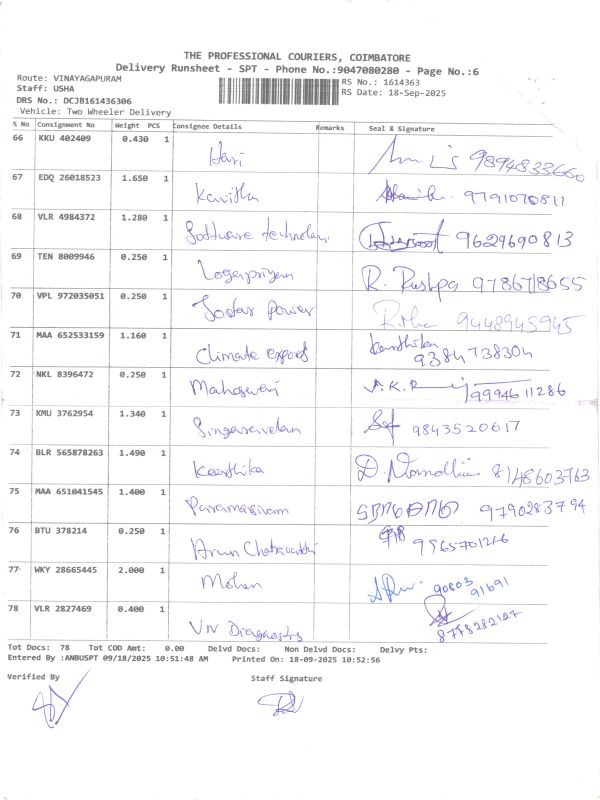 THE PROFESSIONAL COURIERS, COIMBATORE
Delivery Runsheet - SPT - Phone No.:9047080280 - Page No.:6
Route: VINAYAGAPURAM
RS No.: 1614363
Staff: USHA
RS Date: 18-Sep-2025
DRS No.: DCJB161436306
Vehicle: Two Wheeler Delivery
S No Consignment No Weight PCS Consignee Details Remarks Seal & Signature
66 KKU 402409 0.430 1 Hari 9894833660
67 EDQ 26018523 1.650 1 Kavitha 9791070811
68 VLR 4984372 1.280 1 Software 9629690813
69 TEN 8009946 0.250 1 Logapriyan R. Pushpa 9786718655
70 VPL 972035051 0.250 1 power 9448945945
71 MAA 652533159 1.160 1 Climate Karthika 9384738304
72 NKL 8396472 0.250 1 9994611286
73 KMU 3762954 1.340 1 Singaravelan 9843520617
74 BLR 565878263 1.490 1 Keerthika 8148603763
75 MAA 651041545 1.400 1 Paramasivam 9790283794
76 BTU 378214 0.250 1 Arun
77 WKY 28665445 2.000 1 Mohan 90803 91691
78 VLR 2827469 0.400 1 VN
Tot Docs: 78 Tot COD Amt: 0.00 Delvd Docs: Non Delvd Docs: Delvy Pts:
Entered By :ANBUSPT 09/18/2025 10:51:48 AM Printed On: 18-09-2025 10:52:56
Verified By Staff Signature